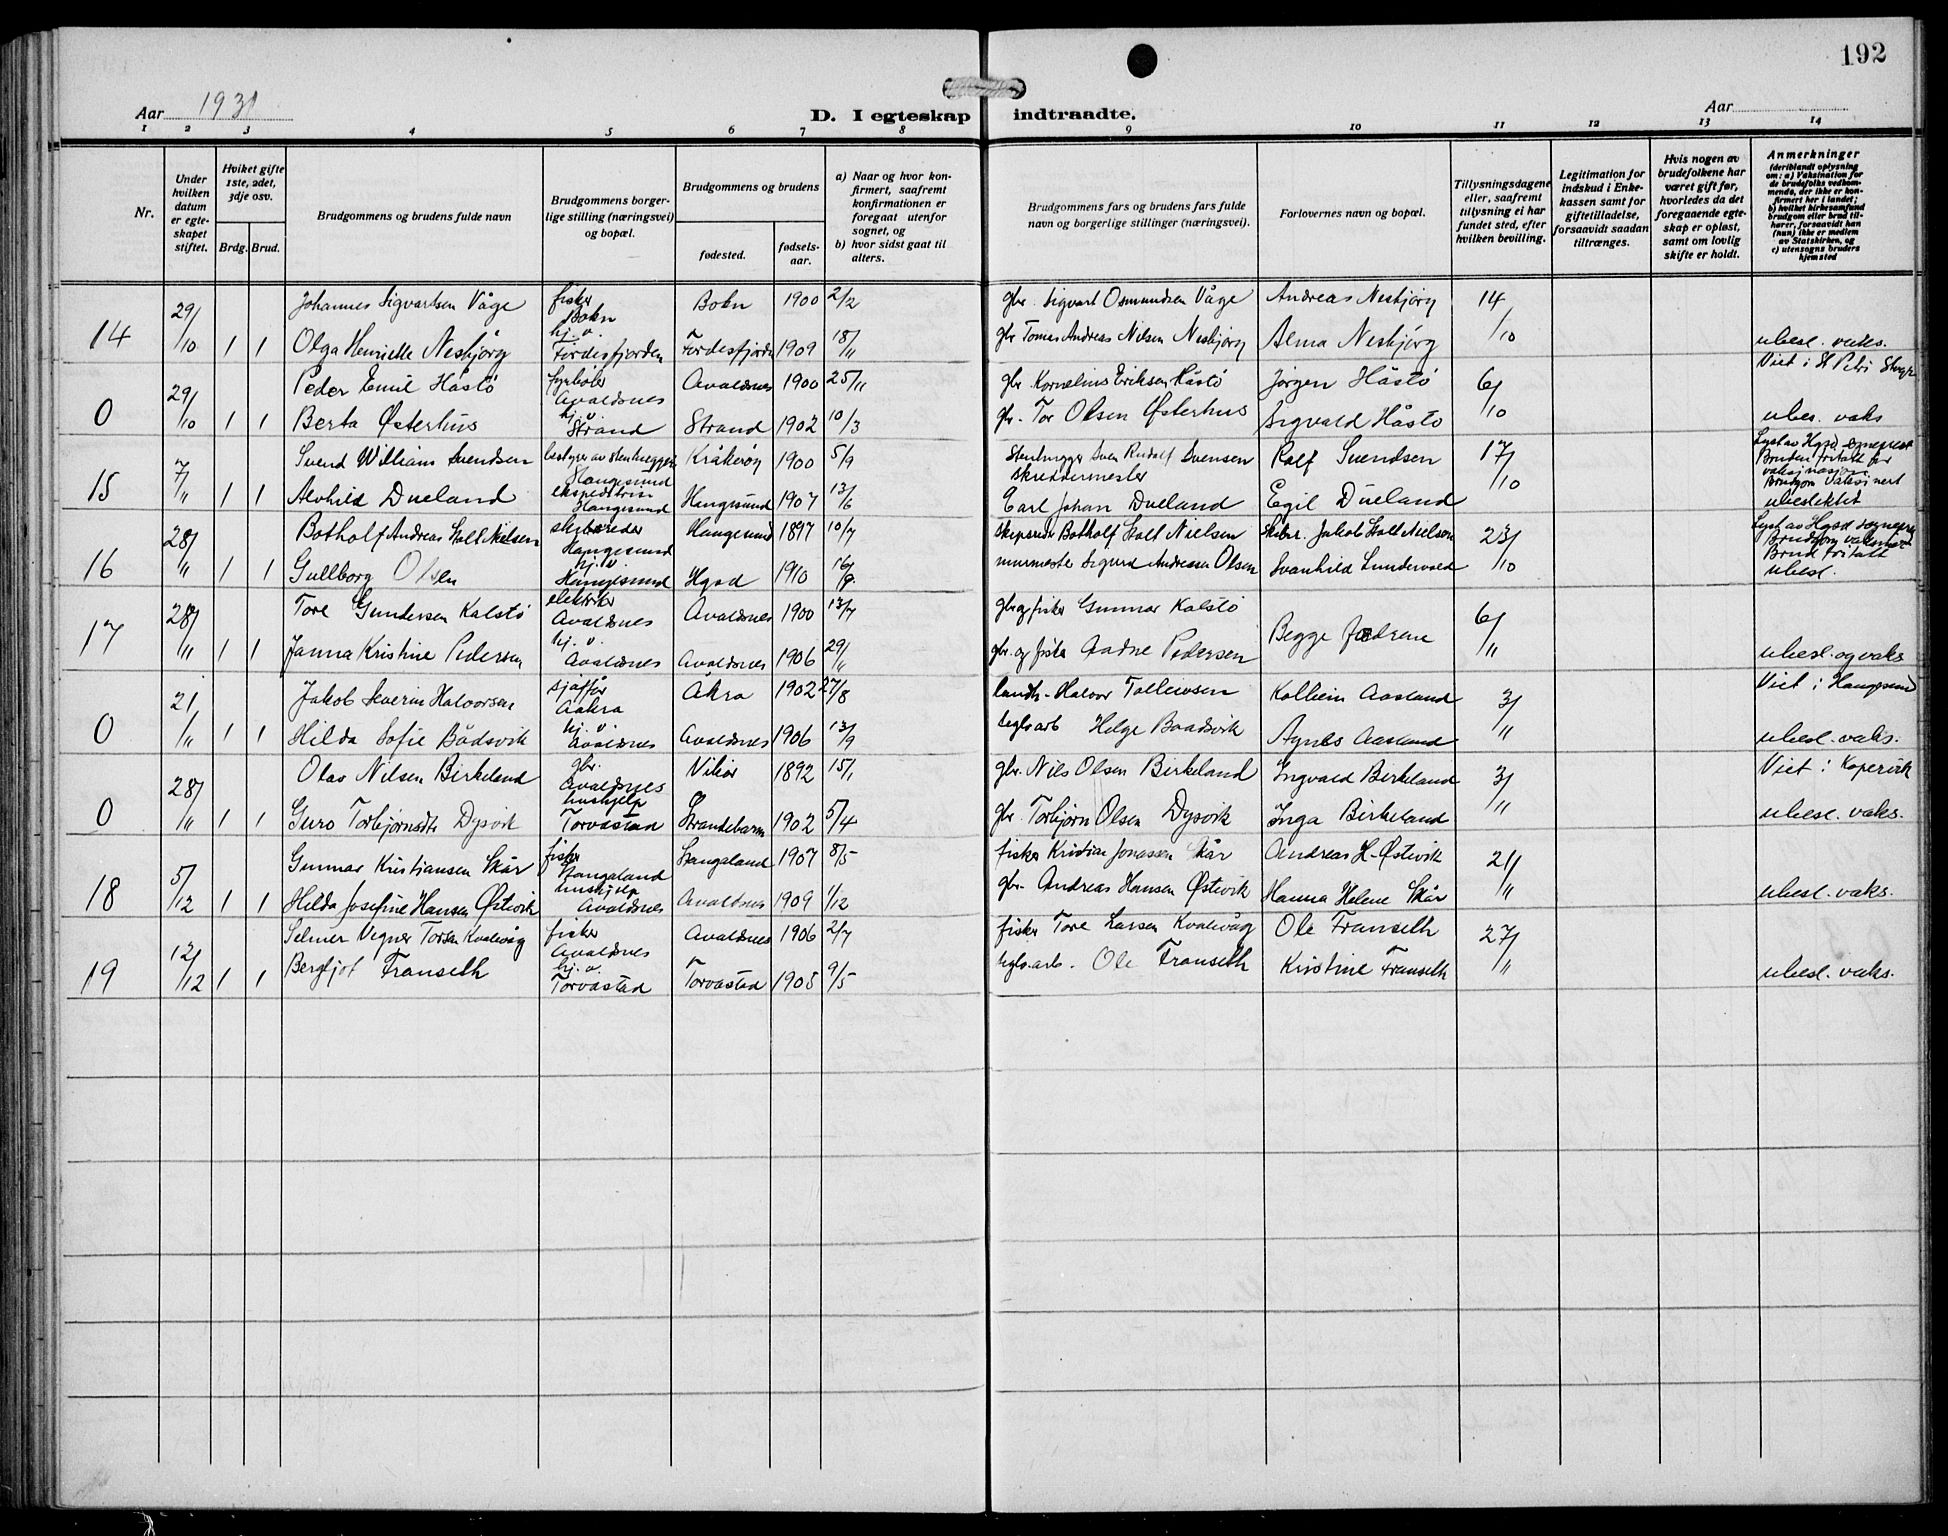 192
Aar 1931
D. I egteskap indtraadte.
Aar
1 2 3 4 5 6 7 8 9 10 11 12 13 14
Nr.
Under hvilken datum er egteskapet stiftet.
Hvilket gifte 1ste, 2det, 3dje osv.
Brdg. Brud.
Brudgommens og brudens fulde navn
Brudgommens borgerlige stilling (næringsvei) og bopæl.
Brudgommens og brudens
fødested.
fødselsaar.
a) Naar og hvor konfirmert, saafremt konfirmationen er foregaat utenfor sognet, og
b) hvor sidst gaat til alters.
Brudgommens fars og brudens fars fulde navn og borgerlige stillinger (næringsvei).
Forlovernes navn og bopæl.
Tillysningsdagene eller, saafremt tillysning ei har fundet sted, efter hvilken bevilling.
Legitimation for indskud i Enkekassen samt for giftetilladelse, forsaavidt saadan tiltrænges.
Hvis nogen av brudefolkene har været gift før, hvorledes da det foregaaende egteskap er opløst, samt om lovlig skifte er holdt.
Anmerkninger (deriblandt oplysning om: a) Vaksination for de brudefolks vedkommende, der ikke er konfirmert her i landet; b) hvilket kirkesamfund brudgom eller brud tilhører, forsaavidt han (hun) ikke er medlem av Statskirken, og c) utensogns bruders hjemsted
14 29/10 1 1 Johannes Sigvartsen Våge fisker Bokn Bokn 1900 2/2 gbr. Sigvart Osmundsen Våge Andreas Nesbjørg 14/10
Olga Henriette Nesbjørg hj. v. Førdesfjorden Førdesfjorden 1909 18/11 gbr Tomas Andreas Nilsen Nesbjørg Alma Nesbjørg ubesl. vaks.
0 29/10 1 1 Peder Emil Håstø fyrbøter Avaldsnes Avaldsnes 1900 25/11 gbr Kornelius Eriksen Håstø Jørgen Håstø 6/10 Viet i St Petri
Berta Østerhus hj. v. Strand Strand 1902 10/3 gbr. Tor Olsen Østerhus Sigvald Håstø ubes. vaks
15 7/11 1 1 Svend William Svendsen bestyrer av stenhuggeri Haugesund Kråkerøy 1900 5/9 Stenhugger Sven Rudolf Svensen Rolf Svendsen 17/10 Lyst av Hgsd sogneprest
Alvhild Dueland ekspeditrise Haugesund Haugesund 1907 13/6 skreddermester Carl Johan Dueland Egil Dueland Bruden fritatt for vaksinasjon Brudgom vaksinert ubeslektet
16 28/11 1 1 Botholf Andreas Stolt Nielsen skibsreder Haugesund Haugesund 1897 10/7 skipsreder Botholf Stolt Nielsen Skibsr. Jakob Stolt Nielsen 23/10 Lyst av Hgsd sognepr
Gullborg Olsen hj. v. Haugesund Hgsd 1910 16/9 murmester Sigurd Andreasen Olsen Svanhild Lundevold Brudgom vaksinert Brud fritatt ubesl.
17 28/11 1 1 Tore Gundersen Kalstø elektriker Avaldsnes Avaldsnes 1900 13/7 gbr og fisker Gunnar Kalstø Begge fedrene 6/11
Janna Kristine Pedersen hj. v. Avaldsnes Avaldsnes 1906 29/11 gbr. og fisker Aadne Pedersen ubesl. og vaks
0 21/11 1 1 Jakob Severin Halvorsen sjåffør Aakra Åkra 1902 27/8 landh. Halvor Tollevsen Kolbein Aasland 3/11 Viet i Haugesund
Hilda Sofie Bådsvik hj. v. Avaldsnes Avaldsnes 1906 13/9 teglv.arb Helge Baadsvik Agnes Aasland ubesl. vaks.
0 28/11 1 1 Olav Nilsen Birkeland gbr. Avaldsnes Vikør 1892 15/1 gbr. Nils Olsen Birkeland Ingvald Birkeland 3/11 Viet i Kopervik
Guro Torbjørnsdtr Dysvik hushjelp Torvastad Strandebarm 1902 5/4 gbr. Torbjørn Olsen Dysvik Inga Birkeland ubesl. vaks.
18 5/12 1 1 Gunnar Kristiansen Skår fisker Stangaland Stangaland 1907 8/5 fisker Kristian Jonassen Skår Andreas H. Østevik 21/11
Hilda Josefine Hansen Østevik hushjelp Avaldsnes Avaldsnes 1909 1/12 gbr. Andreas Hansen Østevik Hanna Helene Skår ubesl. vaks.
19 12/12 1 1 Selmer Vegner Torsen Kvalevåg fisker Avaldsnes Avaldsnes 1906 2/7 fisker Tore Larsen Kvalevåg Ole Franseth 27/11
Bergljot Franseth hj. v. Torvastad Torvastad 1905 9/5 teglv.arb. Ole Franseth Kristine Franseth ubesl. vaks.